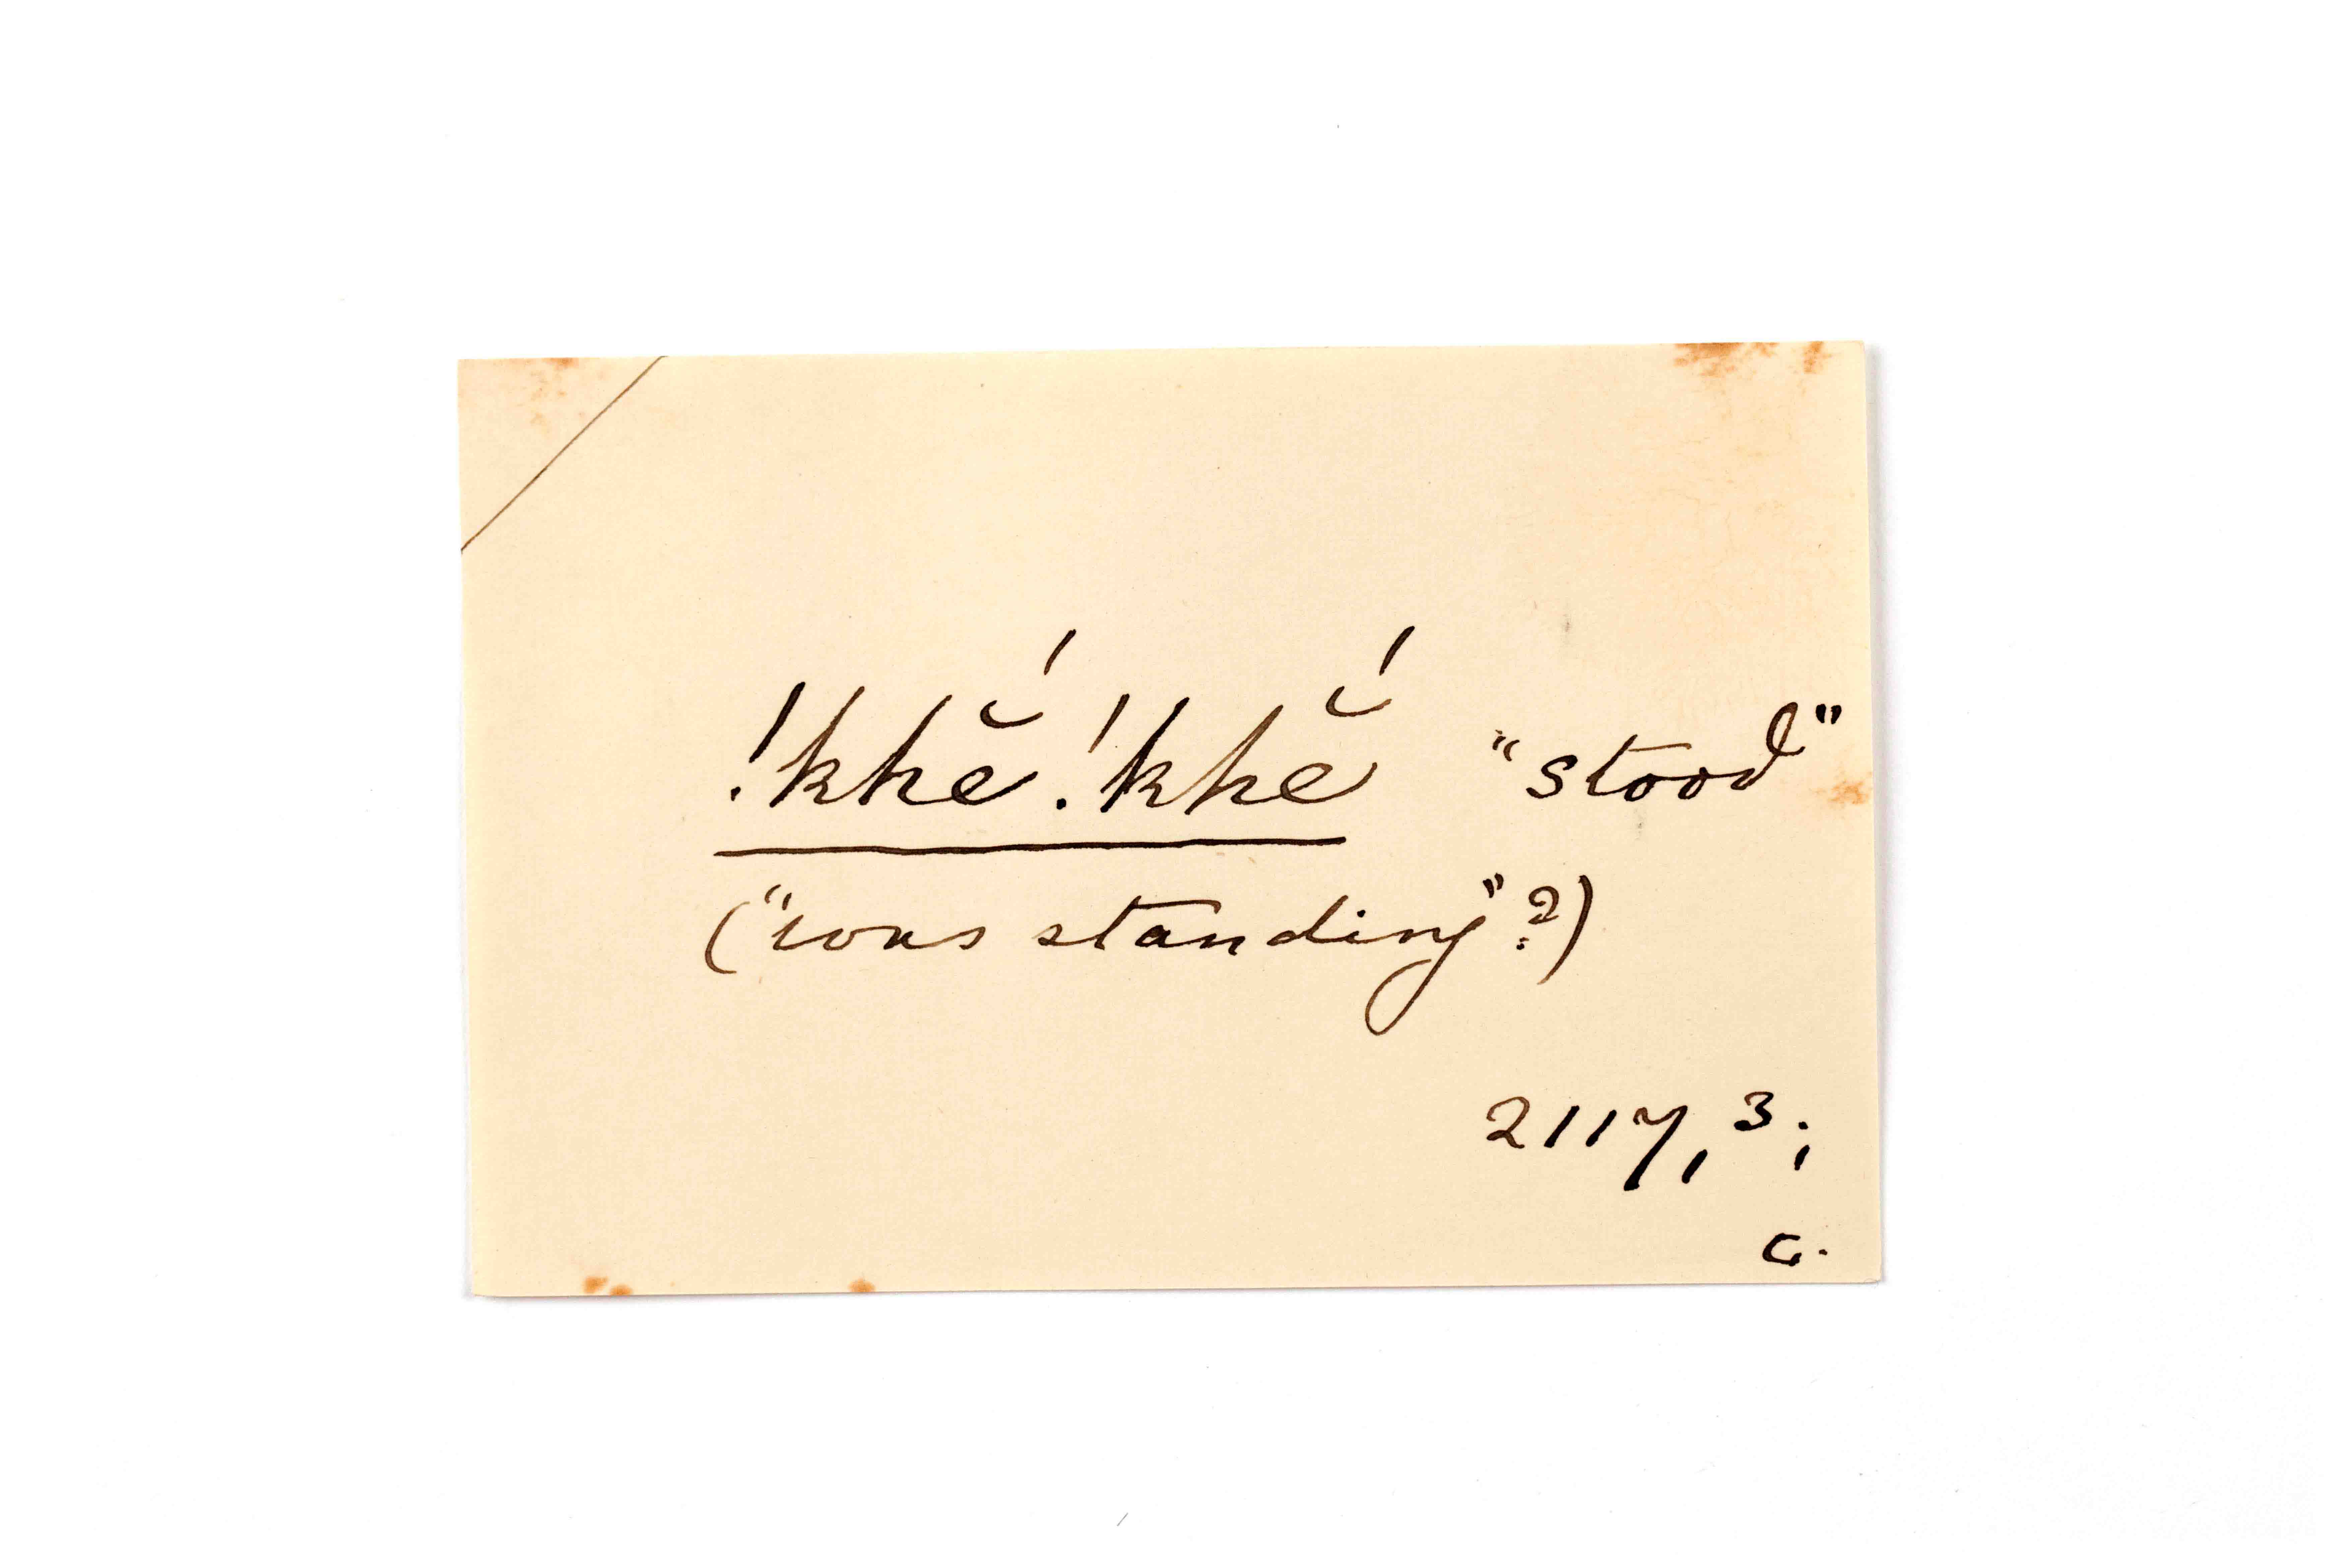 !khĕ́!khĕ́ "stood"
("was standing"?)
2117, 3;
C.